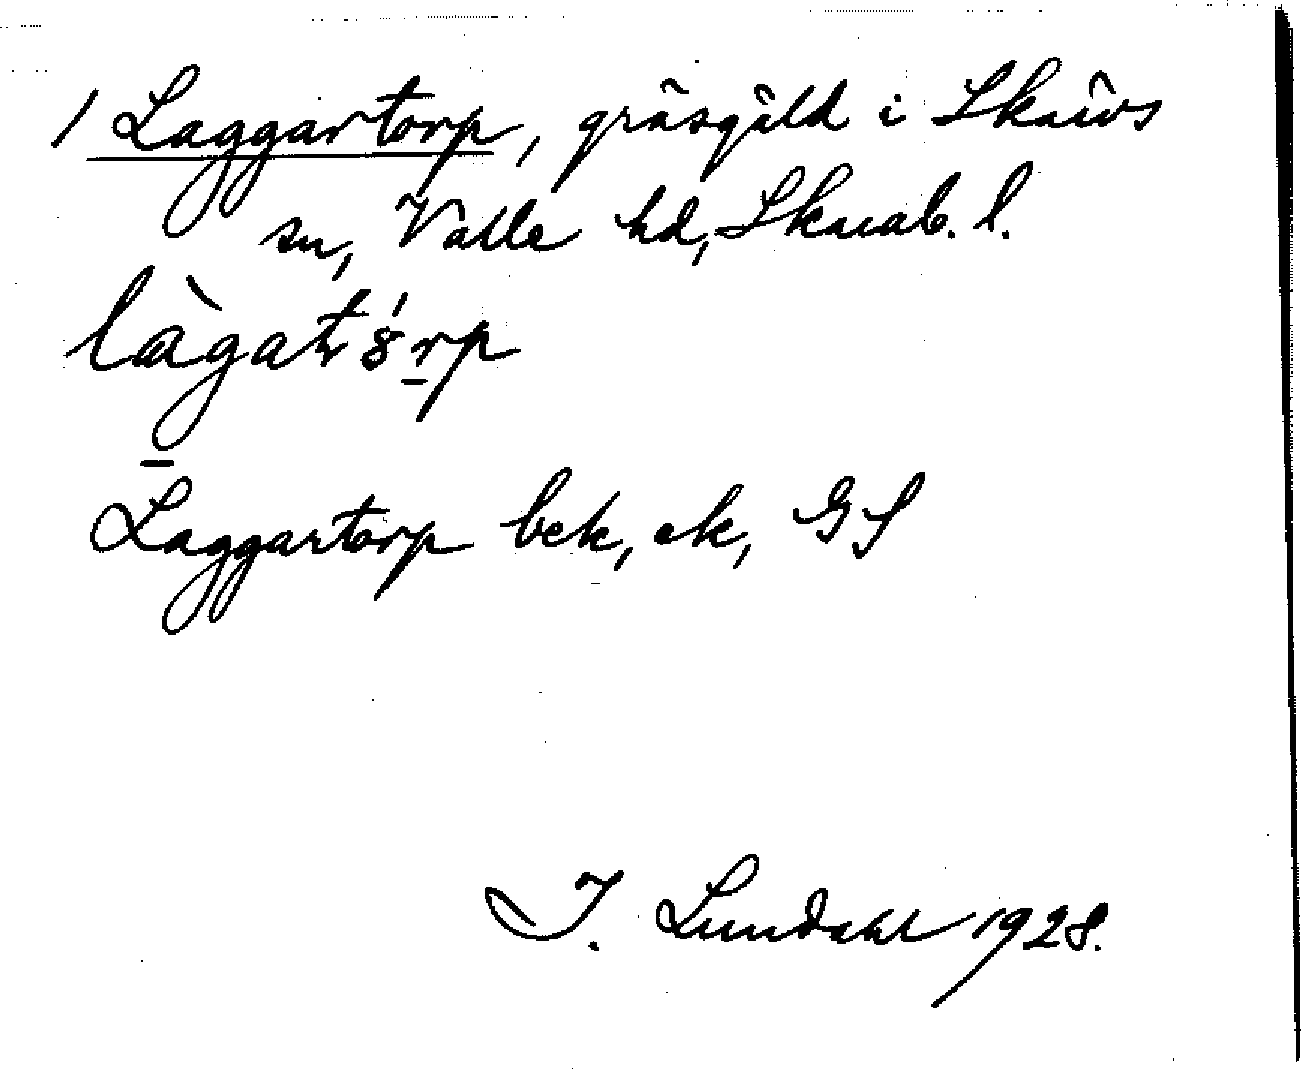 1 Laggartorp, gräsgäld i Skärvs
sn, Valle hd, Skarab. l.
làgató̱rp
Laggartorp bek, ek, GS
I. Lundahl 1928.